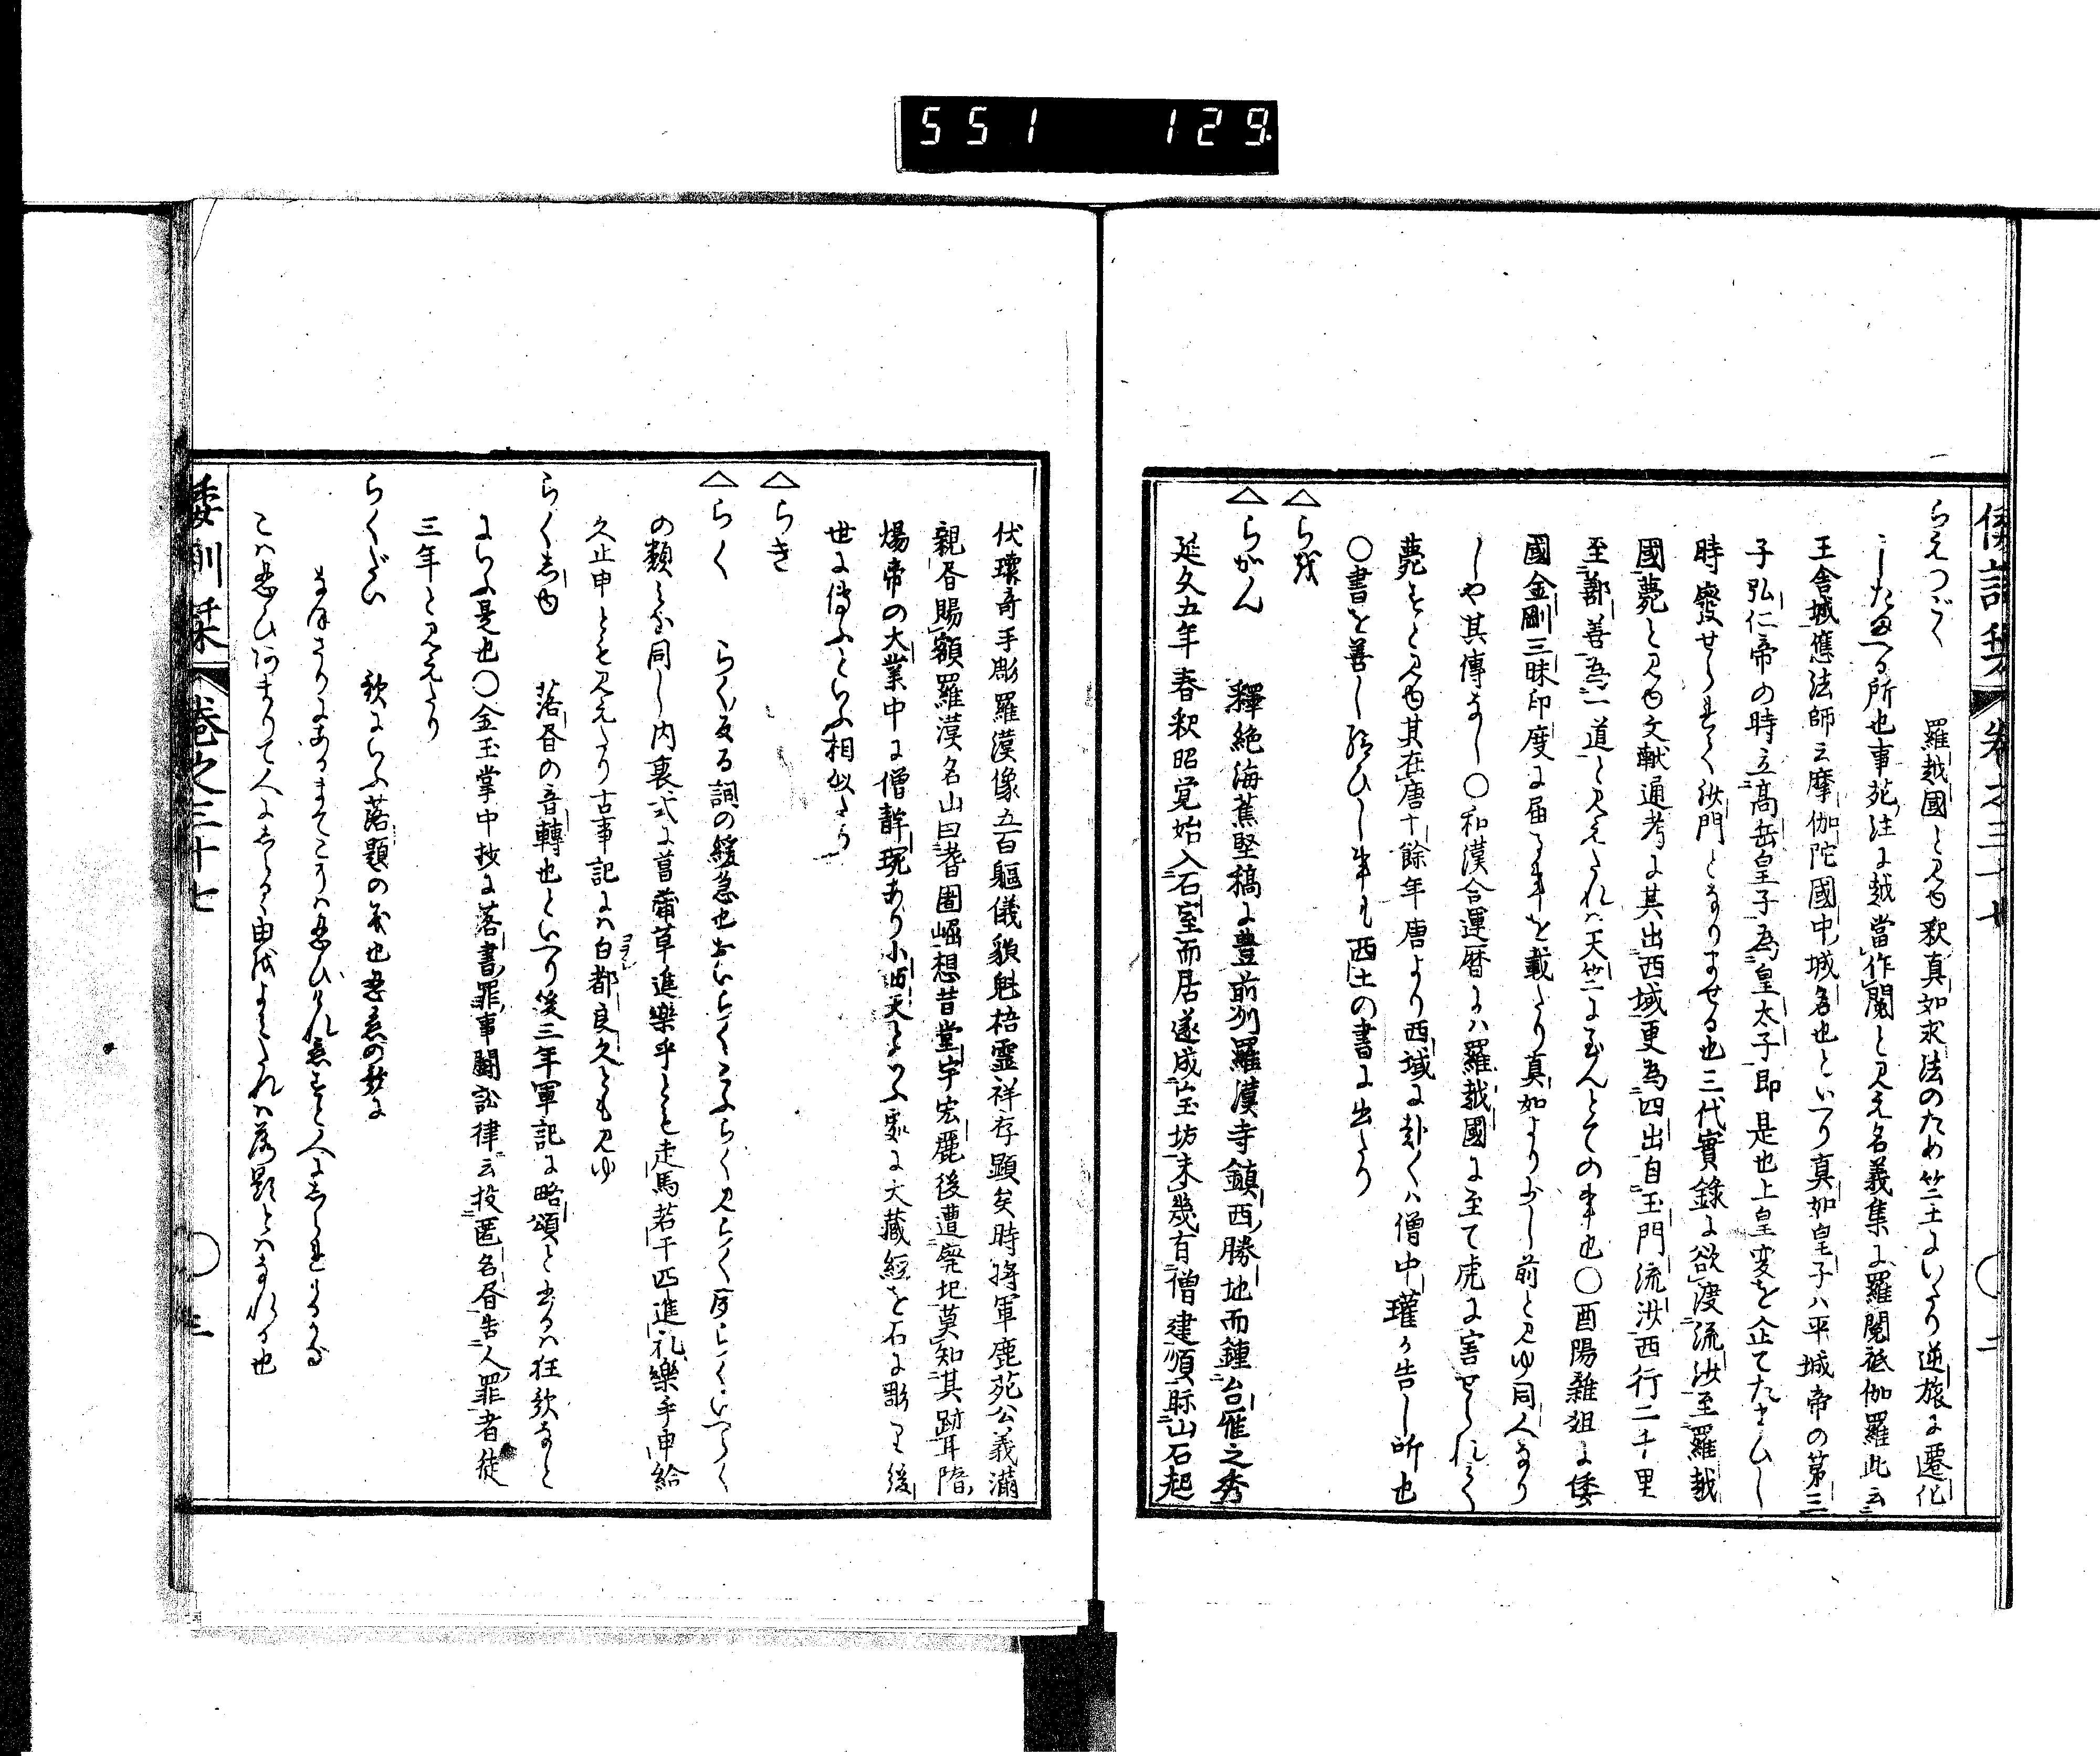 551 129
倭訓栞 巻之三十七 〇 二
らえつごく 羅越國と見ゆ釈真如求法のため竺土にいたり逆旅に遷化
したまへる所也事苑注に越當作閲と見え名義集に羅閲祗伽羅此云
王舎城應法師云摩伽陀國中城名也といへり真如皇子ハ平城帝の第三
子弘仁帝の時立高岳皇子為皇太子即是也上皇変を企てたまひし
時廢せられて沙門となりませる也三代實錄に欲渡流沙至羅越
國薨と見ゆ文献通考に其出西域更為四出自玉門流沙西行二千里
至鄯善為一道と見えたれハ天竺に至んとての事也〇酉陽雜俎に倭
國金剛三昧印度に届る事を載たり真如より少し前と見ゆ同人なり
しや其傳なし〇和漢合運暦にハ羅越國に至て虎に害せられて
薨すと見ゆ其在唐十餘年唐より西域に赴くハ僧中瓘か告し所也
〇書を善し給ひし事も西土の書に出たり
△らが
△らがん 釋絶海蕉堅稿に豊前州羅漢寺鎮西勝地而鍾台雁之秀
延文五年春釈昭覚始入石室而居遂成宝坊未幾有僧建順聆山石起
伏瓌奇手彫羅漢像五百軀儀貌魁梧霊祥存顕矣時将軍鹿苑公義満
親昏賜額羅漢名山曰耆闍崛想昔堂宇宏麗後遭廃圮莫知其跡耳隋
煬帝の大業中に僧静琬あり小西天といふ処に大藏經を石に彫り後
世に傳ふといふ相似たり
△らき
△らく らくハる詞の緩急也おいらくこふらく見らく なといへらく
の類るに同し内裏式に菖蒲草進樂乎とも走馬若干匹進礼樂乎申給
久止申とも見えたり古事記にハ白都良久とも見ゆ
らくしゆ 落昏の音轉也といへり後三年軍記に略頌と書るハ狂歌なと
にいふ是也〇金玉掌中抄に落書罪事闘訟律云投匿名昏告人罪者徒
三年と見えたり
らくだい 歌にいふ落題の義也忍恋の歌に
なほさりにあるまてこそハ忍ひけれ恋すと人にしられぬるかな
こハ忍ひあまりて人にしらるゝ由をよみたれハ落題とハなれる也
倭訓栞 巻之三十七 〇 三